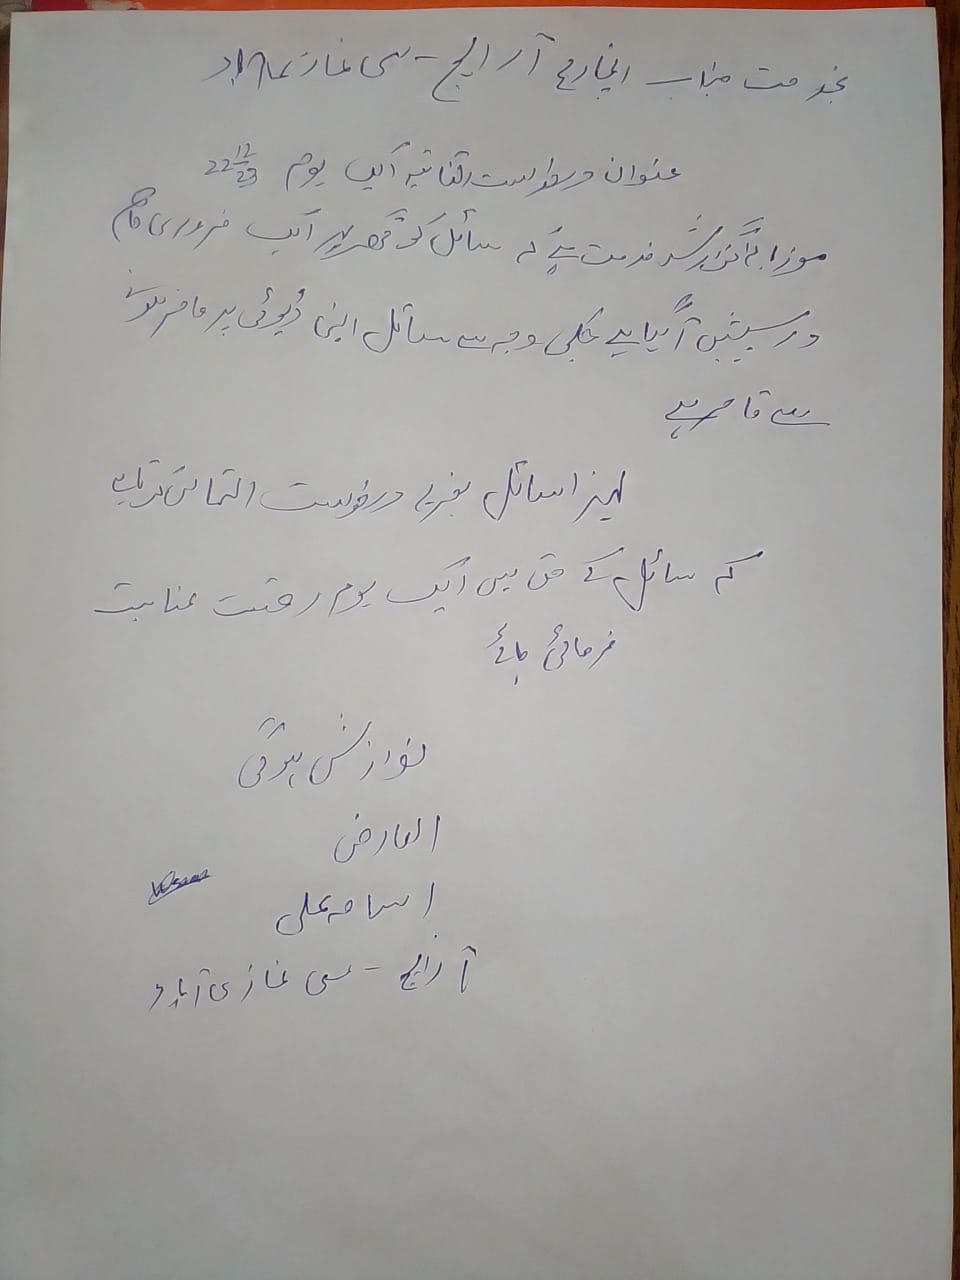 بخدمت جناب انچارج آر ایچ - سی غازی آباد
عنوان درخواست اتفاقیہ ایک یوم 22/12/23
گزارش خدمت ہے کہ سائل کو گھر پر ایک ضروری کام
درپیش آ گیا ہے جسکی وجہ سے سائل اپنی ڈیوٹی پر حاضر ہونے
سے قاصر ہے
لہذا سائل بذریعہ درخوست التماس کرتا ہے
کہ سائل کے حق میں ایک یوم رخصت عنایت
فرمائی جائے
نوازش ہو گی
العارض
اسامہ علی
آر ایچ - سی غازی آباد